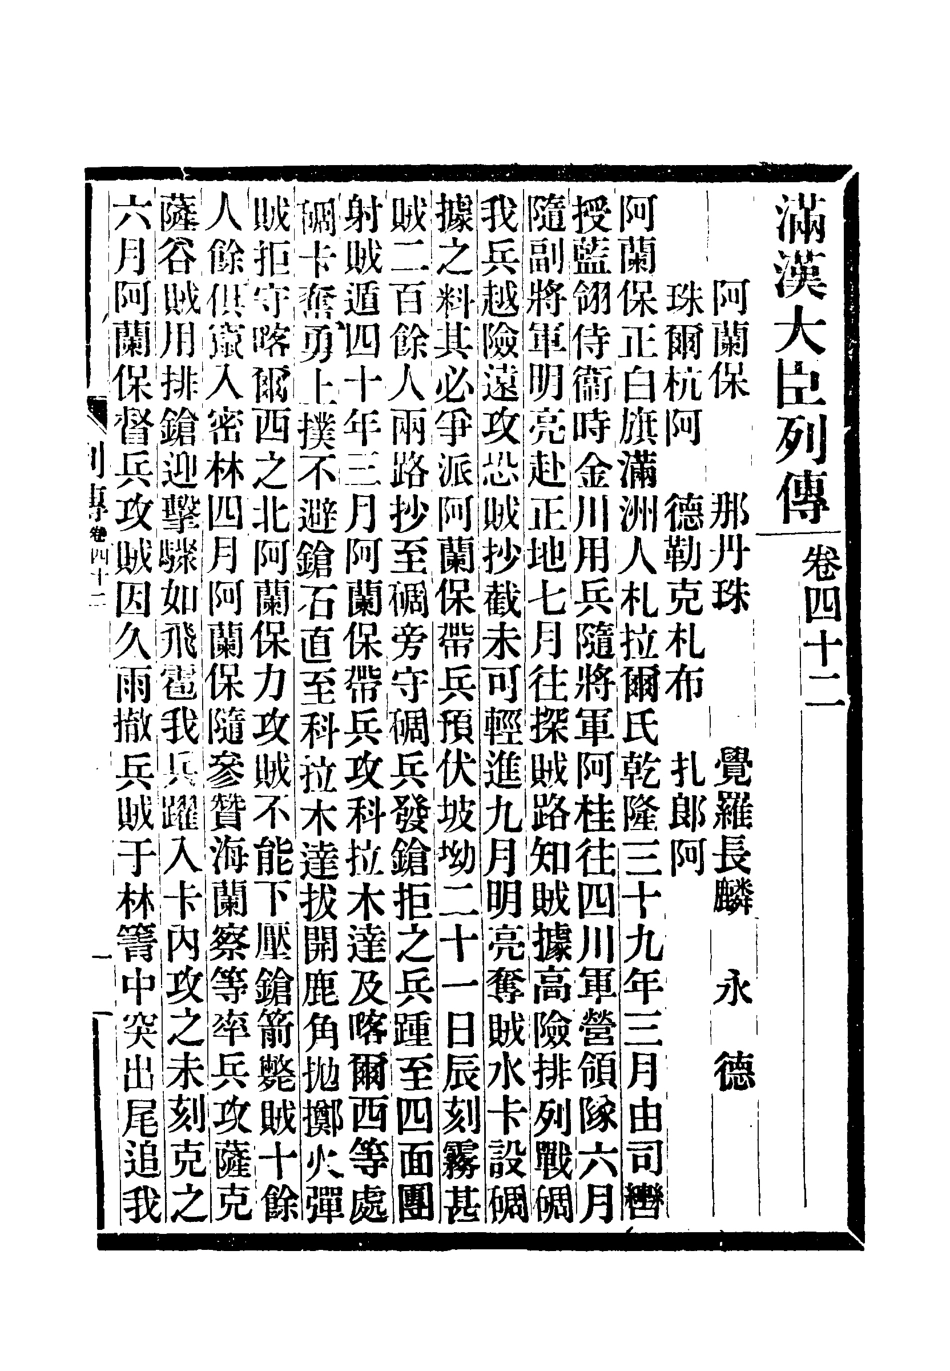 滿漢大臣列傳 卷四十二
阿蘭保 那丹珠 覺羅長麟 永德
珠爾杭阿 德勒克札布 扎郎阿
阿蘭保正白旗滿洲人札拉爾氏乾隆三十九年三月由司轡
授藍翎侍衞時金川用兵隨將軍阿桂往四川軍營領隊六月
隨副將軍明亮赴正地七月往探賊路知賊據高險排列戰碉
我兵越險遠攻恐賊抄截未可輕進九月明亮奪賊水卡設碉
據之料其必爭派阿蘭保帶兵預伏坡坳二十一日辰刻霧甚
賊二百餘人兩路抄至碉旁守碉兵發鎗拒之兵踵至四面團
射賊遁四十年三月阿蘭保帶兵攻科拉木達及喀爾西等處
碉卡奮勇上撲不避鎗石直至科拉木達拔開鹿角拋擲火彈
賊拒守喀爾西之北阿蘭保力攻賊不能下壓鎗箭斃賊十餘
人餘俱竄入密林四月阿蘭保隨參贊海蘭察等率兵攻薩克
薩谷賊用排鎗迎擊驟如飛雹我兵躍入卡內攻之未刻克之
六月阿蘭保督兵攻賊因久雨撤兵賊于林箐中突出尾追我
列傳 卷四十二 一